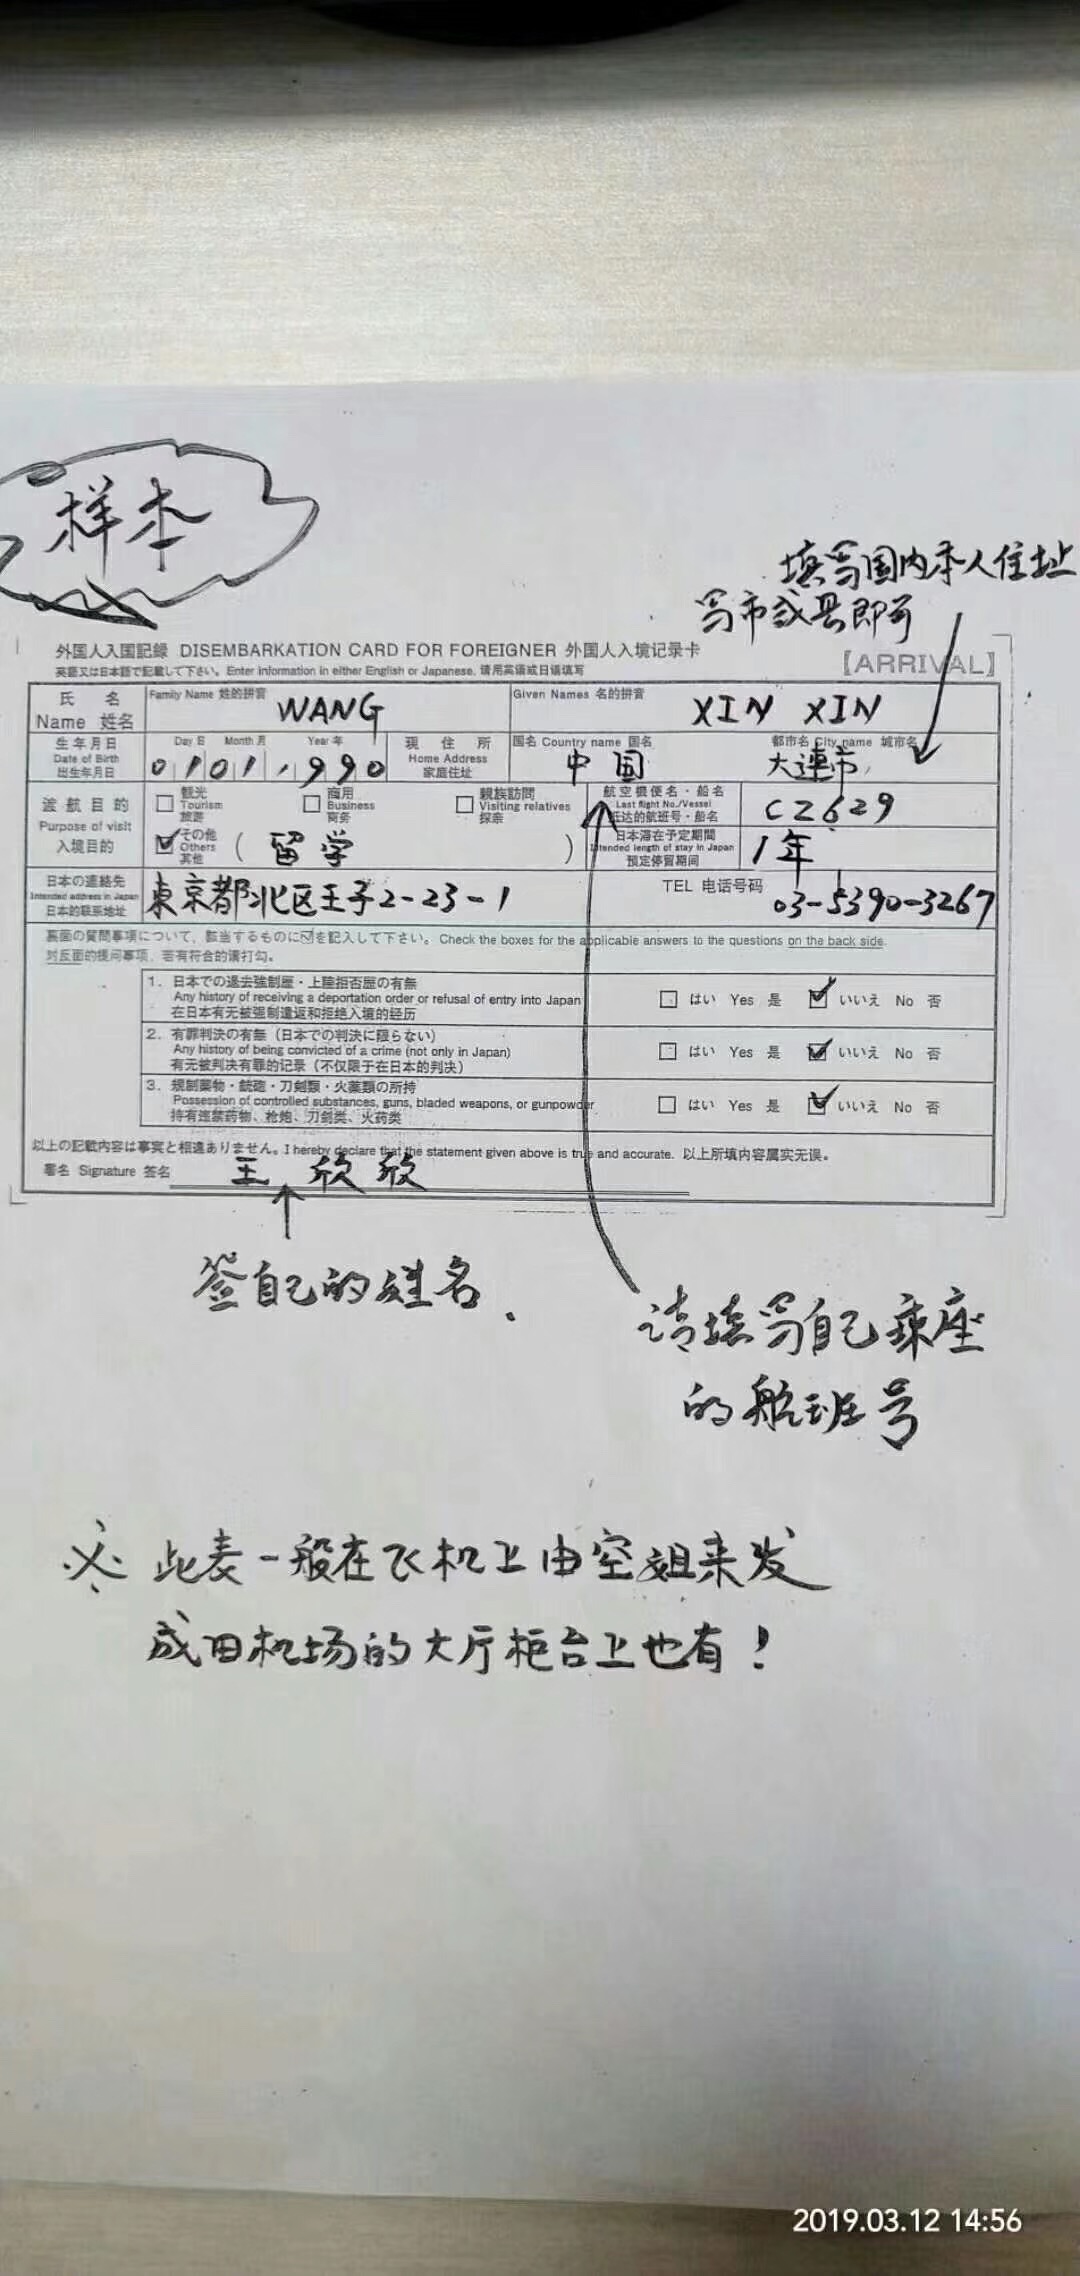 样本
填写国内本人住址
写市或县即可
外国人入国記録 DISEMBARKATION CARD FOR FOREIGNER 外国人入境记录卡
英語又は日本語で記載して下さい。Enter information in either English or Japanese. 请用英语或日语填写
【ARRIVAL】
氏 名
Name 姓名
Family Name 姓的拼音
WANG
Given Names 名的拼音
XIN XIN
生年月日
Date of Birth
出生年月日
Day 日 Month 月 Year 年
01011990
現住所
Home Address
家庭住址
国名 Country name 国名
中国
都市名 City name 城市名
大連市
渡航目的
Purpose of visit
入境目的
観光
Tourism
旅游
商用
Business
商务
親族訪問
Visiting relatives
探亲
その他
Others
其他
( 留学 )
航空機便名・船名
Last flight No./Vessel
抵达的航班号・船名
CZ629
日本滞在予定期間
Intended length of stay in Japan
预定停留期间
1年
日本の連絡先
Intended address in Japan
日本的联系地址
東京都北区王子2-23-1
TEL 电话号码
03-5390-3267
裏面の質問事項について、該当するものに☑を記入して下さい。Check the boxes for the applicable answers to the questions on the back side.
对反面的提问事项，若有符合的请打勾。
1. 日本での退去強制歴・上陸拒否歴の有無
Any history of receiving a deportation order or refusal of entry into Japan
在日本有无被强制遣返和拒绝入境的经历
はい Yes 是 いいえ No 否
2. 有罪判決の有無（日本での判決に限らない）
Any history of being convicted of a crime (not only in Japan)
有无被判决有罪的记录（不仅限于在日本的判决）
はい Yes 是 いいえ No 否
3. 規制薬物・銃砲・刀剣類・火薬類の所持
Possession of controlled substances, guns, bladed weapons, or gunpowder
持有违禁药物、枪炮、刀剑类、火药类
はい Yes 是 いいえ No 否
以上の記載内容は事実と相違ありません。I hereby declare that the statement given above is true and accurate. 以上所填内容属实无误。
署名 Signature 签名
王欣欣
签自己的姓名.
请填写自己乘座
的航班号
※ 此表一般在飞机上由空姐来发
成田机场的大厅柜台上也有！
2019.03.12 14:56